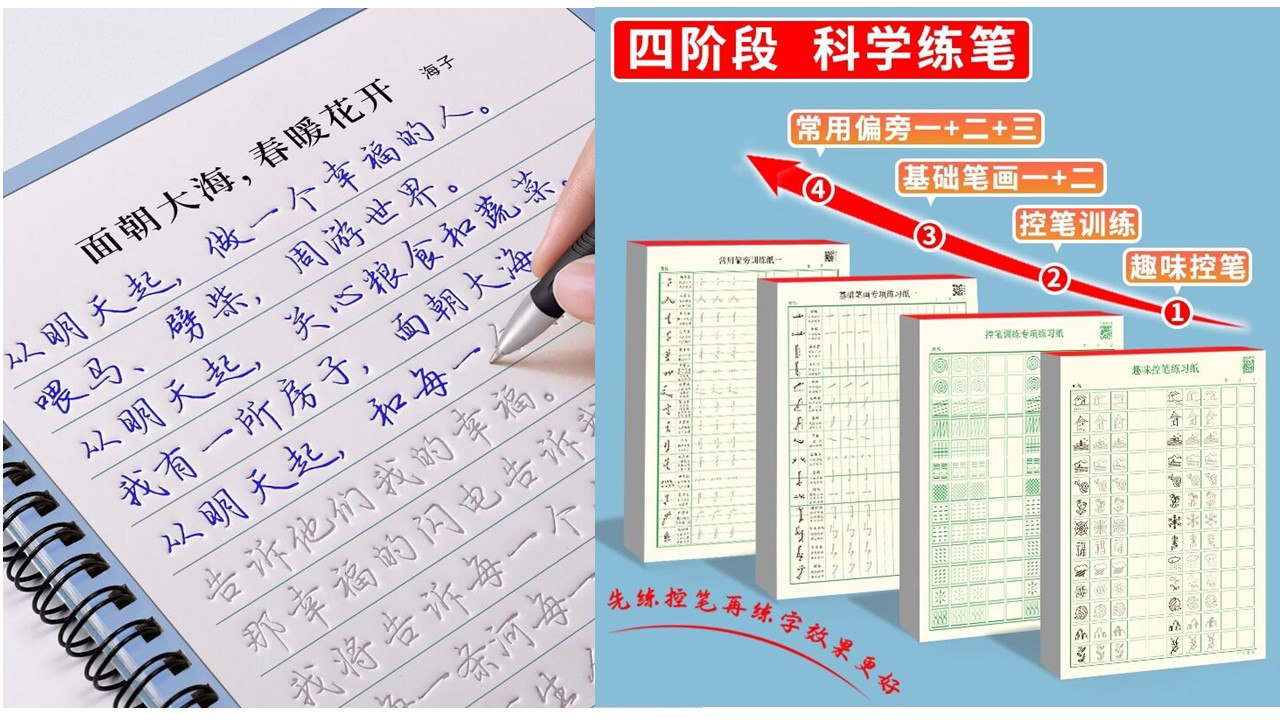 面朝大海，春暖花开 海子
从明天起，做一个幸福的人。
喂马、劈柴，周游世界。
从明天起，关心粮食和蔬菜。
我有一所房子，面朝大海
从明天起，和每一
告诉他们我的幸福。
那幸福的闪电告诉我
我将告诉每一个
每一条河每一
生
四阶段 科学练笔
常用偏旁一+二+三
④
基础笔画一+二
③
控笔训练
②
趣味控笔
①
常用偏旁训练纸一
基础笔画专项练习纸一
控笔训练专项练习纸
趣味控笔练习纸
先练控笔再练字效果更好